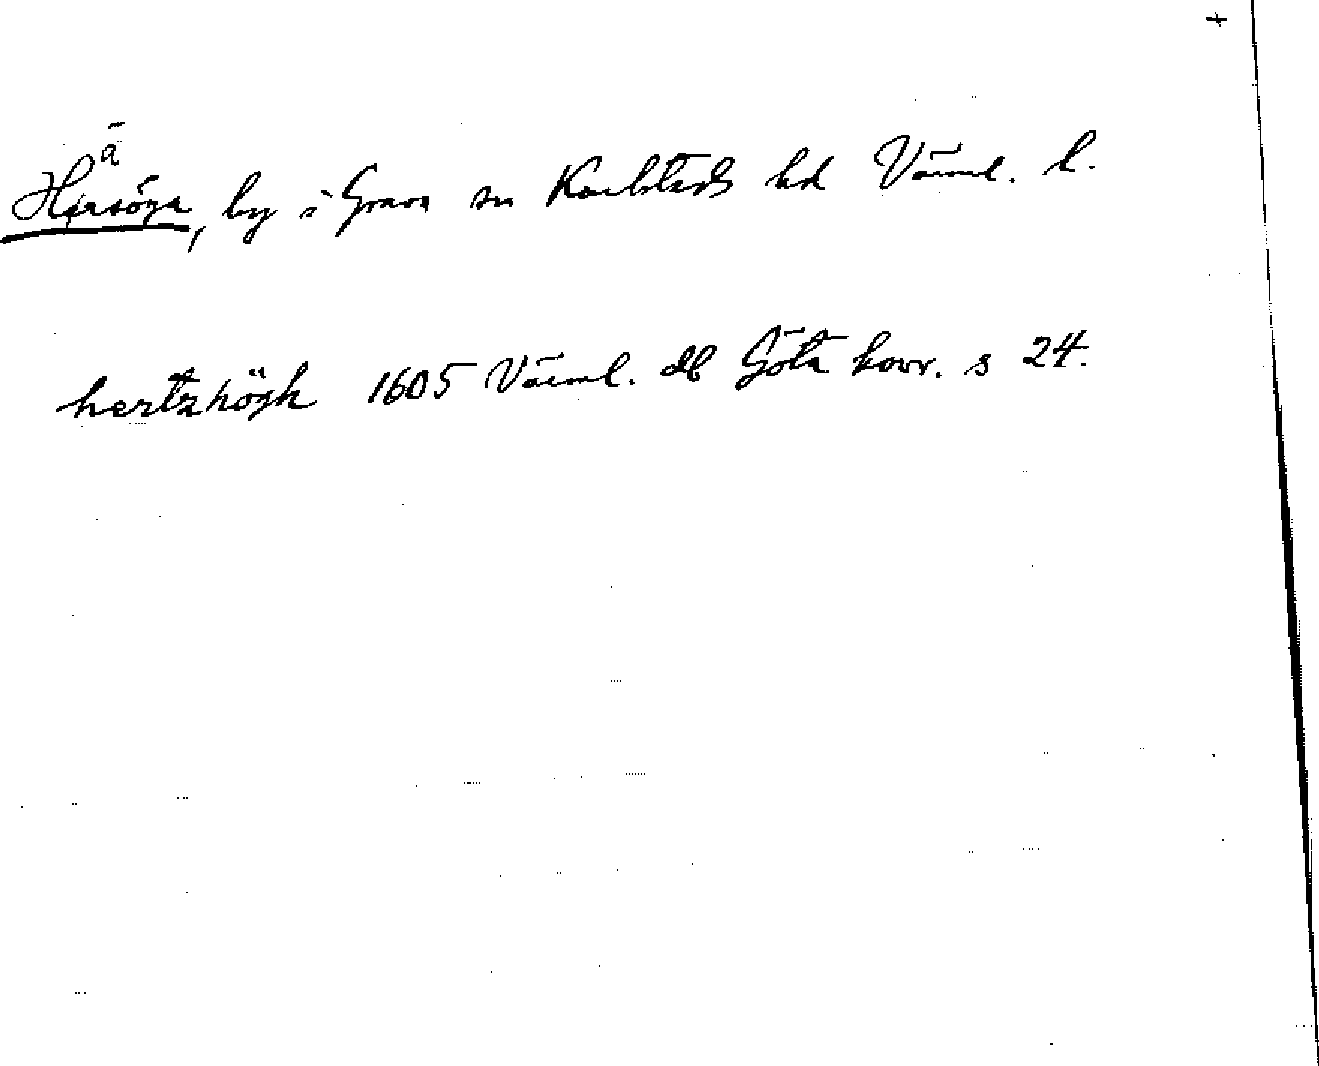 Hersöga, by i Grava sn Karlstads hd Värml. l.
hertzhögh 1605 Värml. db Göta hovr. s 24.